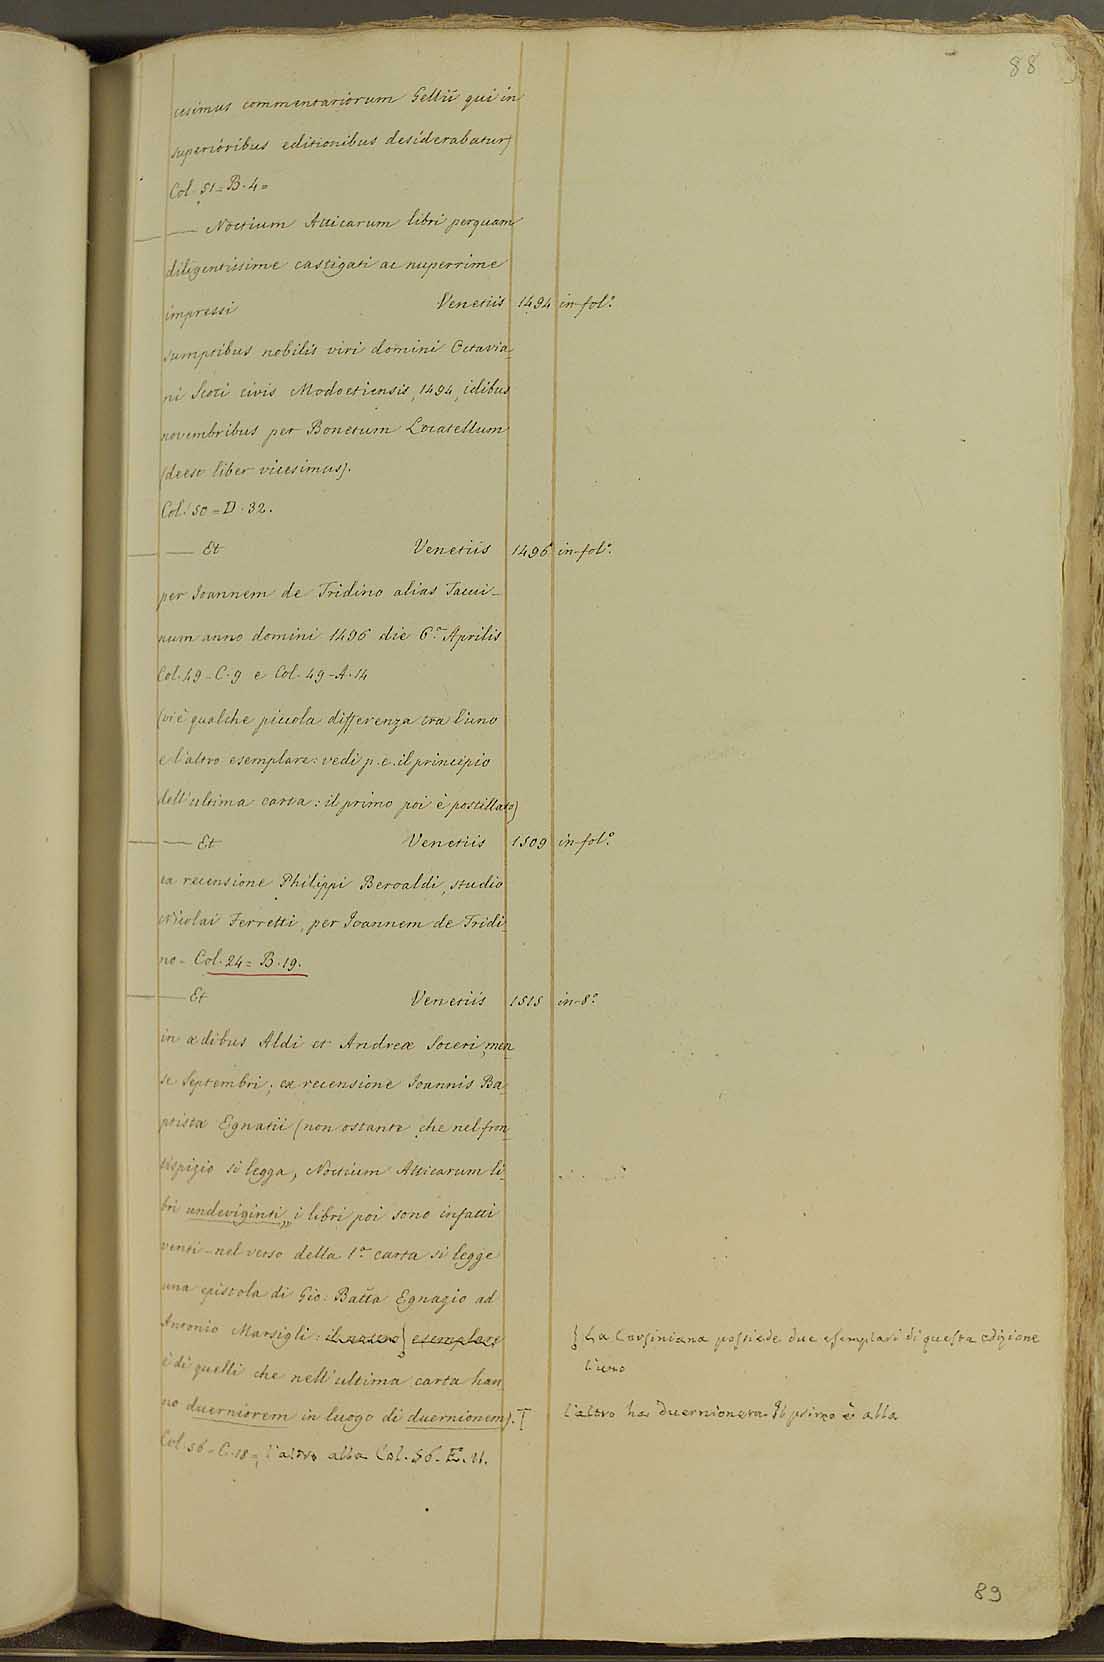 88
cesimus commentariorum Gellii qui in
superioribus editionibus desiderabatur)
Col. 51 = B. 4 =
— Noctium Atticarum libri perquam
diligentissime castigati ac nuperrime
impressi Venetiis 1494 in-fol.º
sumptibus nobilis viri domini Octavia-
ni Scoti civis Modoetiensis, 1494, idibus
novembribus per Bonetum Locatellum
(deest liber vicesimus).
Col. 50 = D. 32.
— Et Venetiis 1496 in-fol.º
per Ioannem de Tridino alias Tacui-
num anno domini 1496 die 6.ª Aprilis
Col. 49 - C. 9 e Col. 49 - A. 14
(vi è qualche piccola differenza tra l'uno
e l'altro esemplare: vedi p. e. il principio
dell'ultima carta: il primo poi è postillato)
— Et Venetiis 1509 in-fol.º
ex recensione Philippi Beroaldi, studio
Nicolai Ferretti, per Ioannem de Tridi
no - Col. 24 = B. 19.
— Et Venetiis 1515 in-8.º
in ædibus Aldi et Andreæ Soceri, men
se Septembri; ex recensione Ioannis Ba-
ptistæ Egnatii (non ostante che nel fron-
tispizio si legga, Noctium Atticarum li-
bri undeviginti,, i libri poi sono infatti
venti - nel verso della 1.ª carta si legge
una epistola di Gio: Batta Egnazio ad
Antonio Marsigli: il nostro } esemplare
} La Corsiniana possiede due esemplari di questa edizione
l'uno
è di quelli che nell'ultima carta han
no duerniorem in luogo di duernionem). T
l'altro ha duernionem. Il primo è alla
Col. 56 - C. 18 =, l'altro alla Col. 56. E. 11.
89